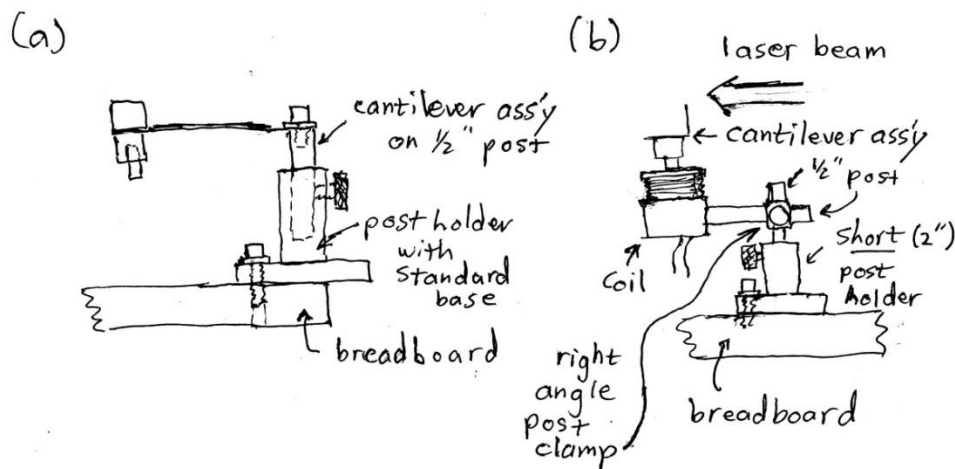 (a)
cantilever ass'y
on 1/2" post
post holder
with
standard
base
breadboard
(b)
laser beam
cantilever ass'y
1/2" post
short (2")
post
holder
coil
right
angle
post
clamp
breadboard